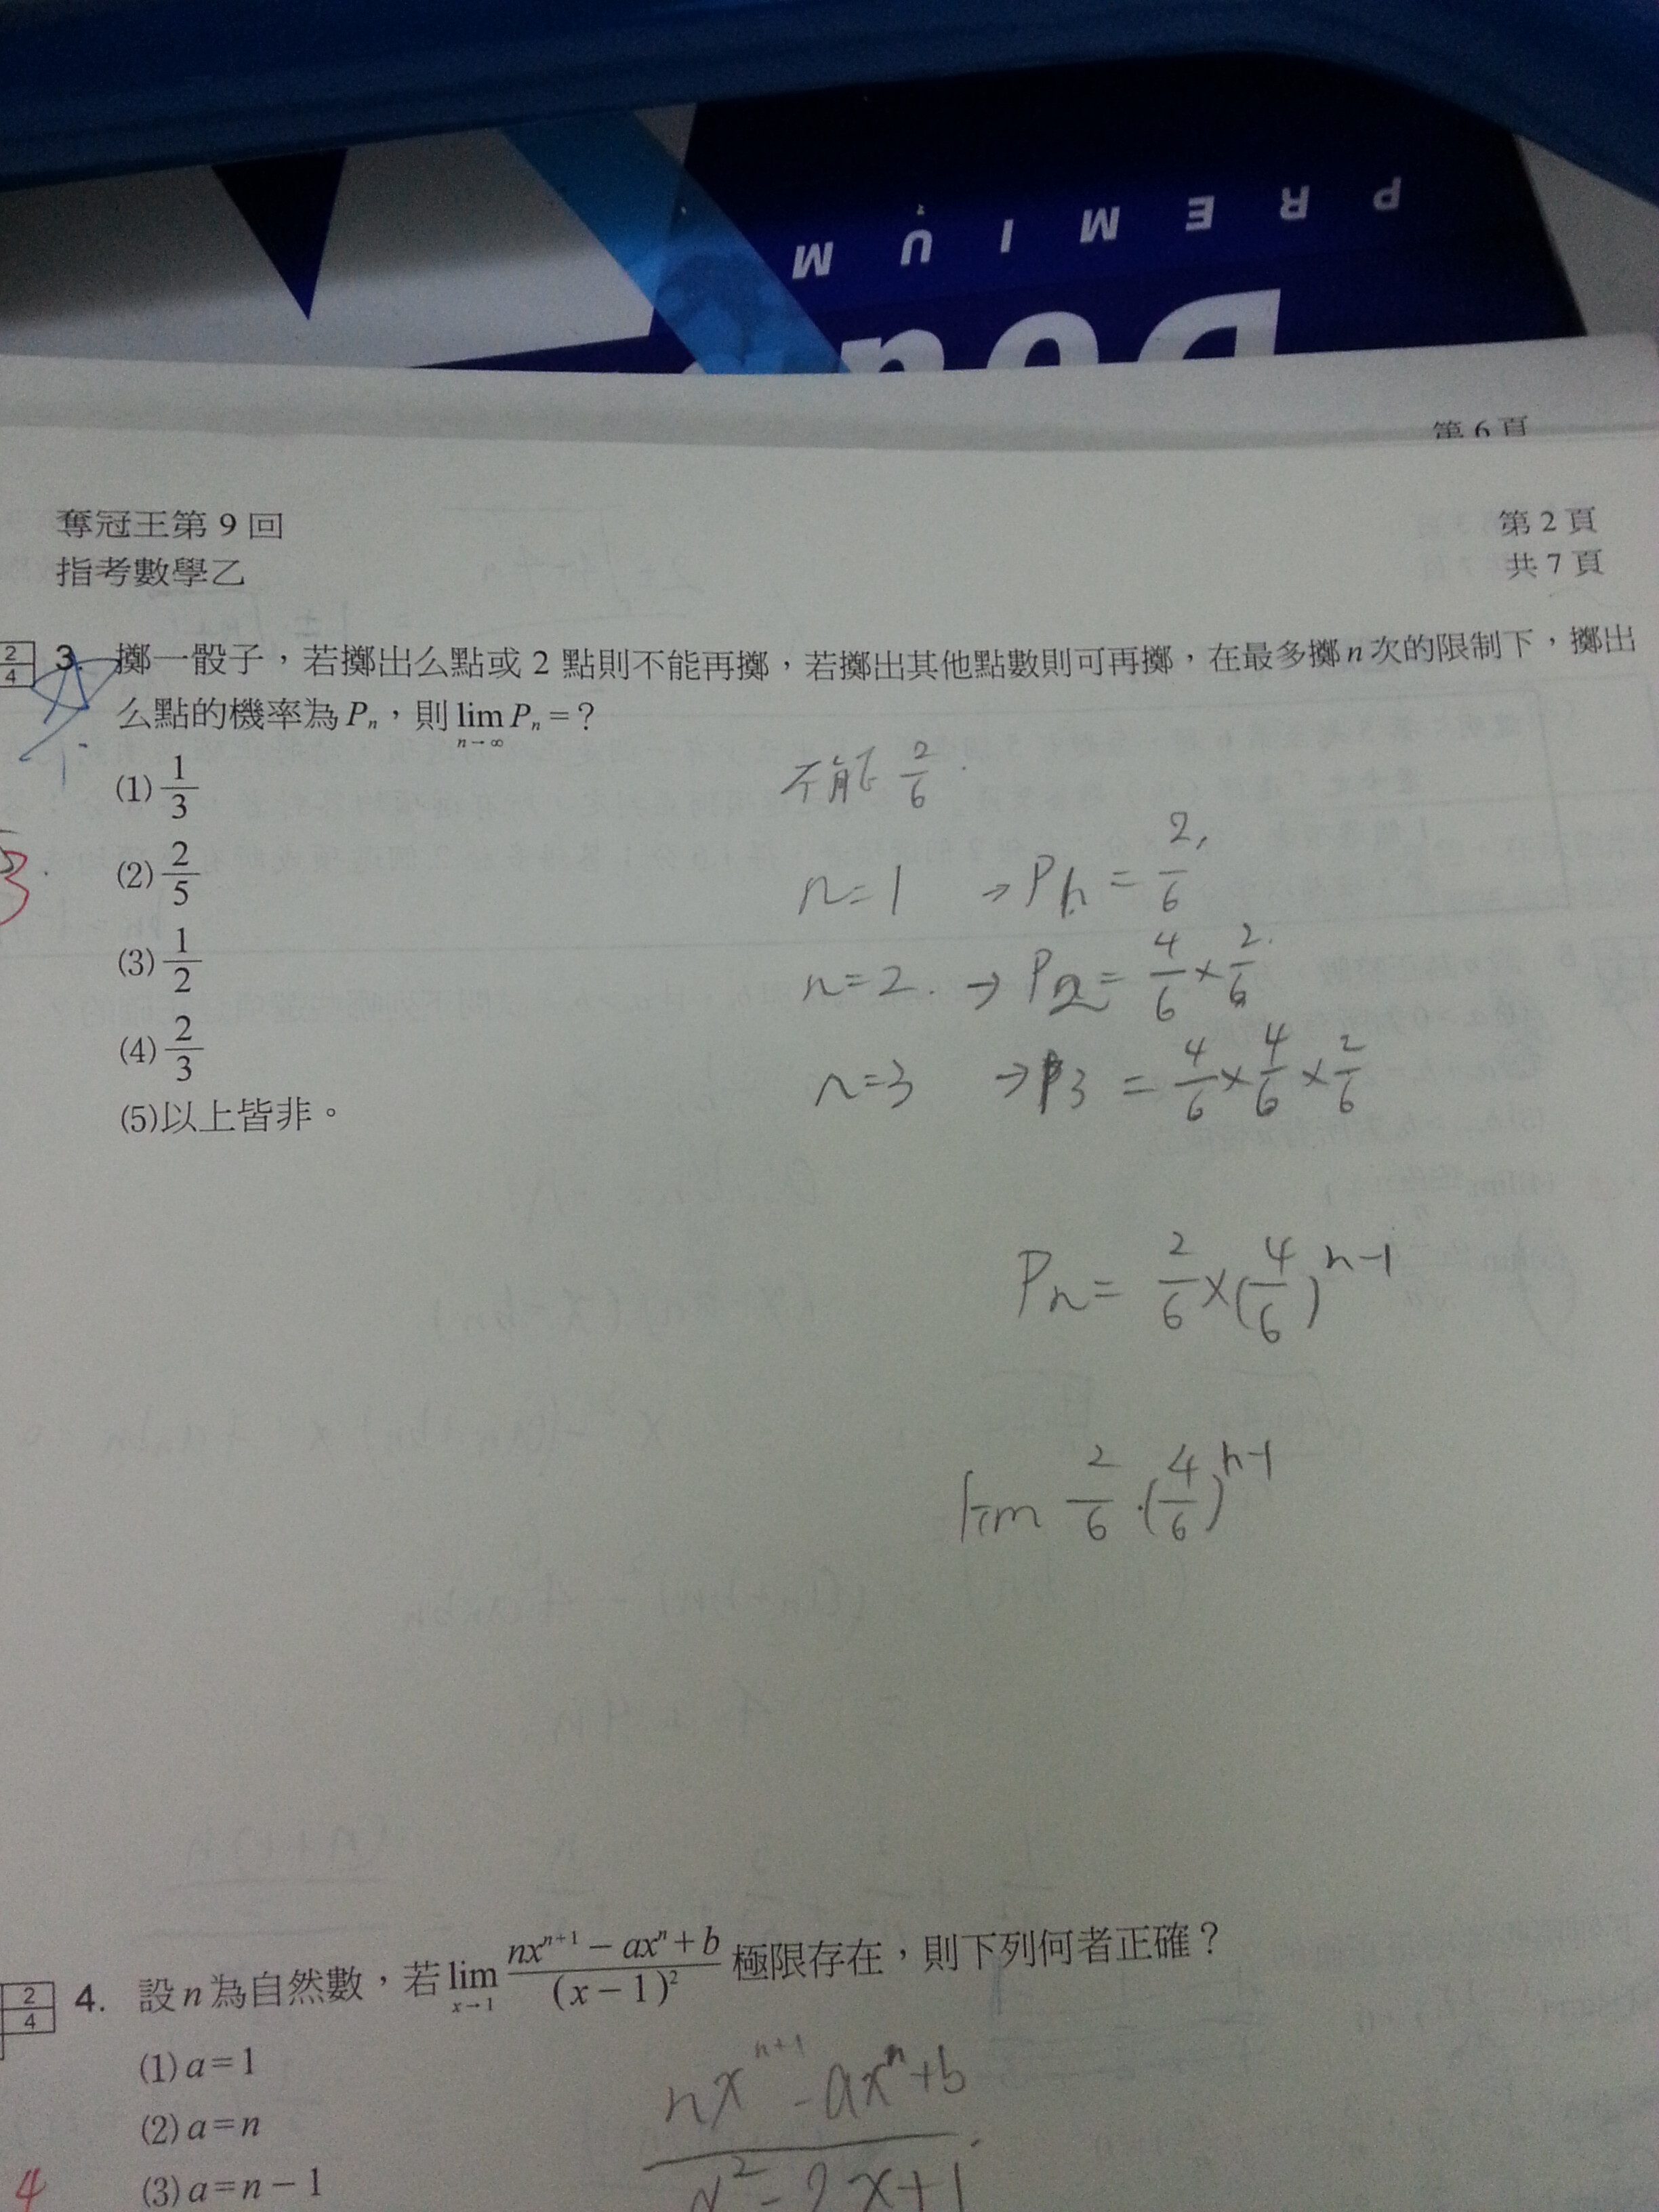 PREMIUM
Dou
第6頁
奪冠王第9回
第2頁
指考數學乙
共7頁
2/4
3. 擲一骰子，若擲出么點或2點則不能再擲，若擲出其他點數則可再擲，在最多擲n次的限制下，擲出
么點的機率為Pₙ，則 lim_{n→∞} Pₙ=？
(1) 1/3
(2) 2/5
(3) 1/2
(4) 2/3
(5)以上皆非。
3
不能 2/6
n=1 → Pn = 2/6
n=2. → P2 = 4/6 × 2/6
n=3 → P3 = 4/6 × 4/6 × 2/6
Pn = 2/6 × (4/6)^{n-1}
lim 2/6 · (4/6)^{n-1}
2/4
4. 設n為自然數，若 lim_{x→1} (nx^{n+1} − ax^n + b)/(x−1)² 極限存在，則下列何者正確？
(1) a=1
(2) a=n
(3) a=n−1
4
nx^{n+1} - ax^n + b
x² - 2x + 1